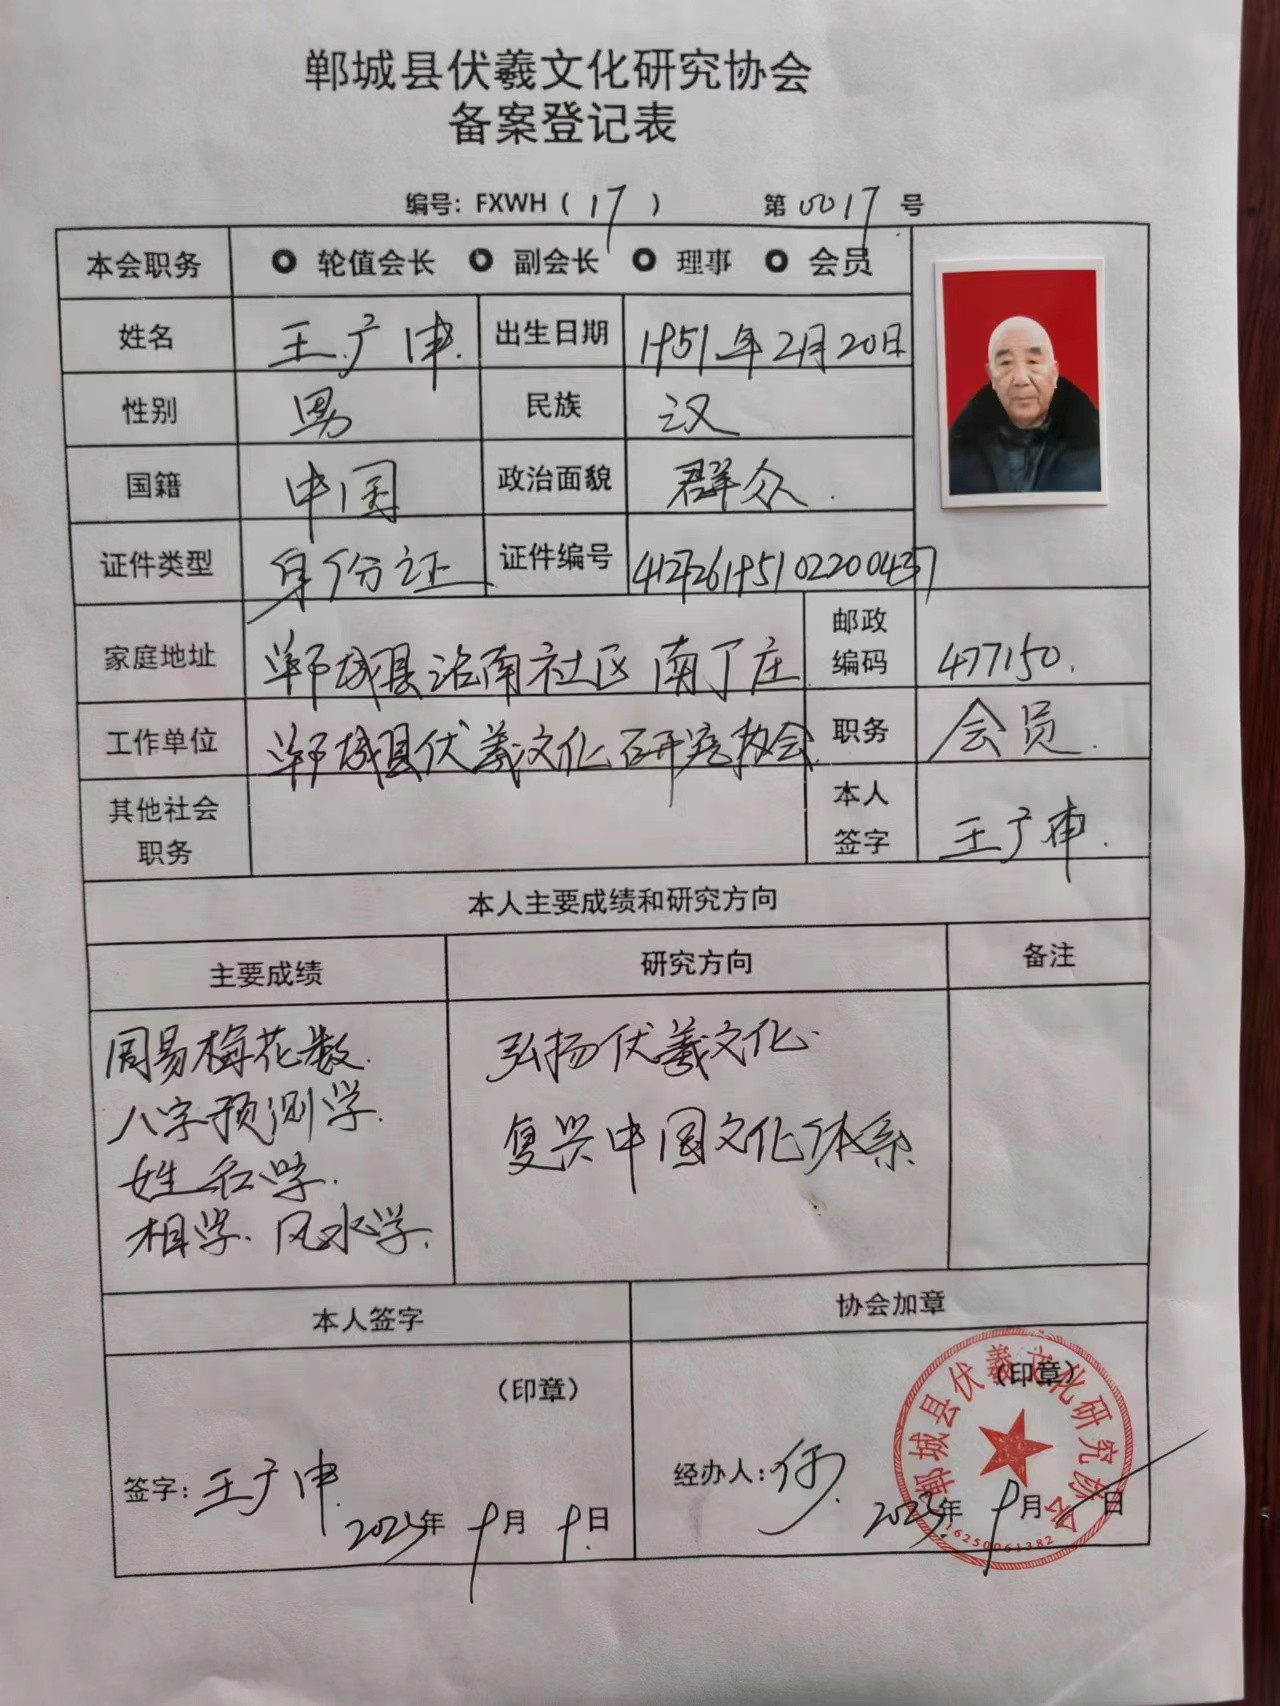 郸城县伏羲文化研究协会
备案登记表
编号: FXWH ( 17 ) 第0017号
本会职务 轮值会长 副会长 理事 会员
姓名 王广申. 出生日期 1951年2月20日
性别 男 民族 汉
国籍 中国 政治面貌 群众.
证件类型 身份证 证件编号
家庭地址 郸城县洺南社区南丁庄 邮政编码 477150.
工作单位 郸城县伏羲文化研究协会 职务 会员.
其他社会职务 本人签字 王广申.
本人主要成绩和研究方向
主要成绩 研究方向 备注
周易梅花数.
八字预测学.
姓名学.
相学、风水学.
弘扬伏羲文化.
复兴中国文化体系
本人签字 协会加章
(印章) (印章)
签字: 王广申.
2023年9月9日
经办人:
2023年9月 日
郸城县伏羲文化研究协会
16250061382